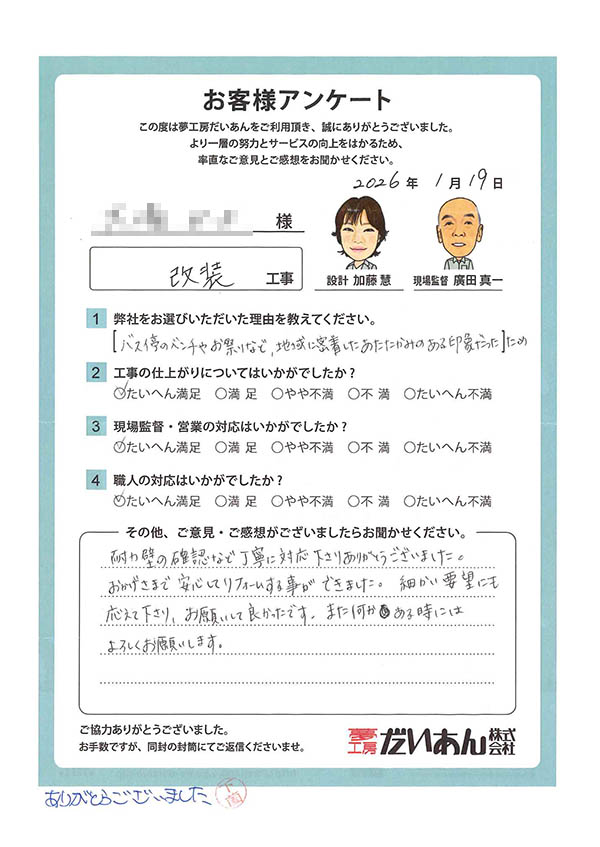 お客様アンケート
この度は夢工房だいあんをご利用頂き、誠にありがとうございました。
より一層の努力とサービスの向上をはかるため、
率直なご意見とご感想をお聞かせください。
2026年 1月19日
様
改装 工事
設計 加藤 慧
現場監督 廣田 真一
1 弊社をお選びいただいた理由を教えてください。
[バス停のベンチやお祭りなど、地域に密着したあたたかみのある印象だった]ため
2 工事の仕上がりについてはいかがでしたか？
○たいへん満足 ○満 足 ○やや不満 ○不 満 ○たいへん不満
3 現場監督・営業の対応はいかがでしたか？
○たいへん満足 ○満 足 ○やや不満 ○不 満 ○たいへん不満
4 職人の対応はいかがでしたか？
○たいへん満足 ○満 足 ○やや不満 ○不 満 ○たいへん不満
その他、ご意見・ご感想がございましたらお聞かせください。
耐力壁の確認など丁寧に対応下さりありがとうございました。
おかげさまで安心してリフォームする事ができました。細かい要望にも
応えて下さり、お願いして良かったです。また何かある時には
よろしくお願いします。
ご協力ありがとうございました。
お手数ですが、同封の封筒にてご返信くださいませ。
夢工房 だいあん 株式会社
ありがとうございました